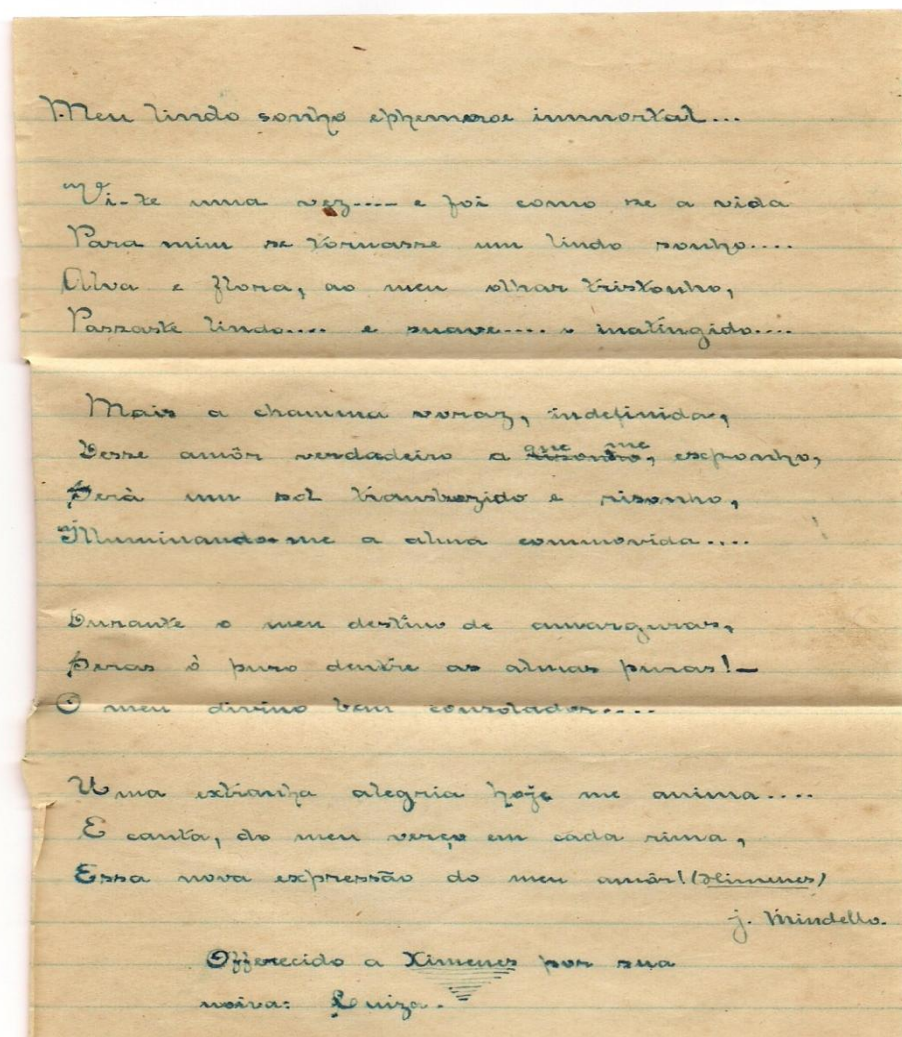 Meu lindo sonho ephemero e immortal...
Vi-te uma vez.... e foi como se a vida
Para mim se tornasse um lindo sonho....
Alva e flora, ao meu olhar tristonho,
Passaste lindo.... e suave.... e inatingido....
Mais a chamma voraz, indefinida,
Desse amôr verdadeiro a que me, exponho,
Serà um sol transluzido e risonho,
Illuminando-me a alma commovida....
Durante o meu destino de amarguras,
Seras ô puro dentre as almas puras!—
O meu divino bem consolador....
Uma extranha alegria hoje me anima....
E canta, do meu verço em cada rima,
Essa nova expressão do meu amôr! (Himenes)
j. Mindello.
Offerecido a Ximenes por sua
noiva: Luiza.